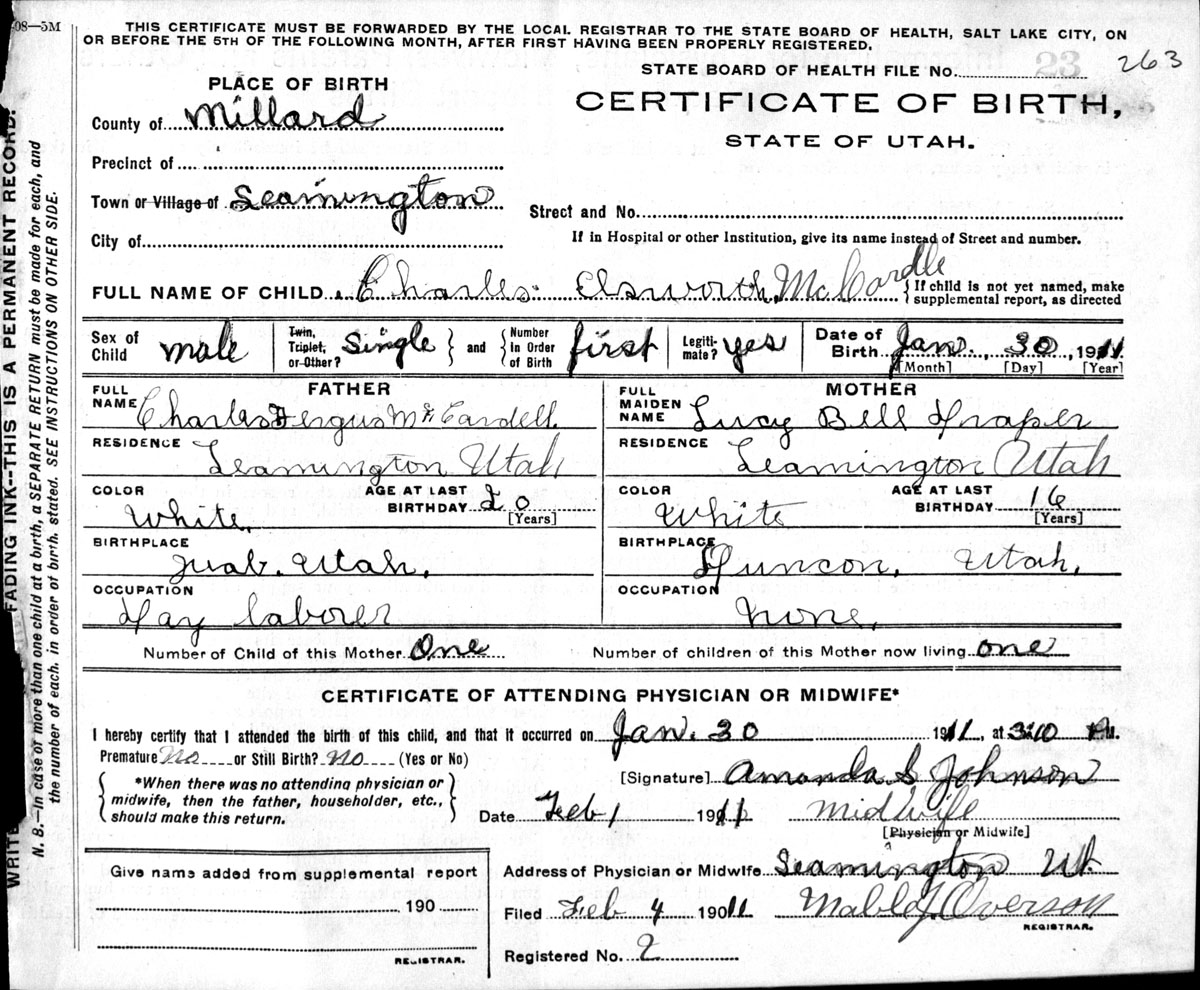 08—5M
THIS CERTIFICATE MUST BE FORWARDED BY THE LOCAL REGISTRAR TO THE STATE BOARD OF HEALTH, SALT LAKE CITY, ON
OR BEFORE THE 5TH OF THE FOLLOWING MONTH, AFTER FIRST HAVING BEEN PROPERLY REGISTERED.
263
STATE BOARD OF HEALTH FILE No. 23
PLACE OF BIRTH
CERTIFICATE OF BIRTH,
STATE OF UTAH.
County of Millard
Precinct of
Town or Village of Leamington
Street and No.
City of
If in Hospital or other Institution, give its name instead of Street and number.
FULL NAME OF CHILD Charles Elsworth McCardle
{If child is not yet named, make
supplemental report, as directed
Sex of Child male Twin, Triplet, or Other? Single } and { Number In Order of Birth first Legiti- mate? yes Date of Birth Jan. 30, 1911
[Month] [Day] [Year]
FATHER MOTHER
FULL NAME Charles Fergus McCardell. FULL MAIDEN NAME Lucy Bell Draper
RESIDENCE Leamington Utah RESIDENCE Leamington Utah
COLOR White. AGE AT LAST BIRTHDAY 20 [Years] COLOR White AGE AT LAST BIRTHDAY 16 [Years]
BIRTHPLACE Juab. Utah. BIRTHPLACE Utah.
OCCUPATION Day laborer OCCUPATION None.
Number of Child of this Mother One Number of children of this Mother now living one
CERTIFICATE OF ATTENDING PHYSICIAN OR MIDWIFE*
I hereby certify that I attended the birth of this child, and that it occurred on Jan. 30 1911, at 3:10 M.
Premature No or Still Birth? No (Yes or No)
{ *When there was no attending physician or
midwife, then the father, householder, etc.,
should make this return. }
[Signature] Amanda S Johnson
Date Feb 1 1911 Midwife
[Physician or Midwife]
Address of Physician or Midwife Leamington Ut.
Give name added from supplemental report
190
REGISTRAR.
Filed Feb 4 1911 Overson
REGISTRAR.
Registered No. 2
WRITE FADING INK--THIS IS A PERMANENT RECORD.
N. B.—In case of more than one child at a birth, a SEPARATE RETURN must be made for each, and
the number of each, in order of birth, stated. SEE INSTRUCTIONS ON OTHER SIDE.